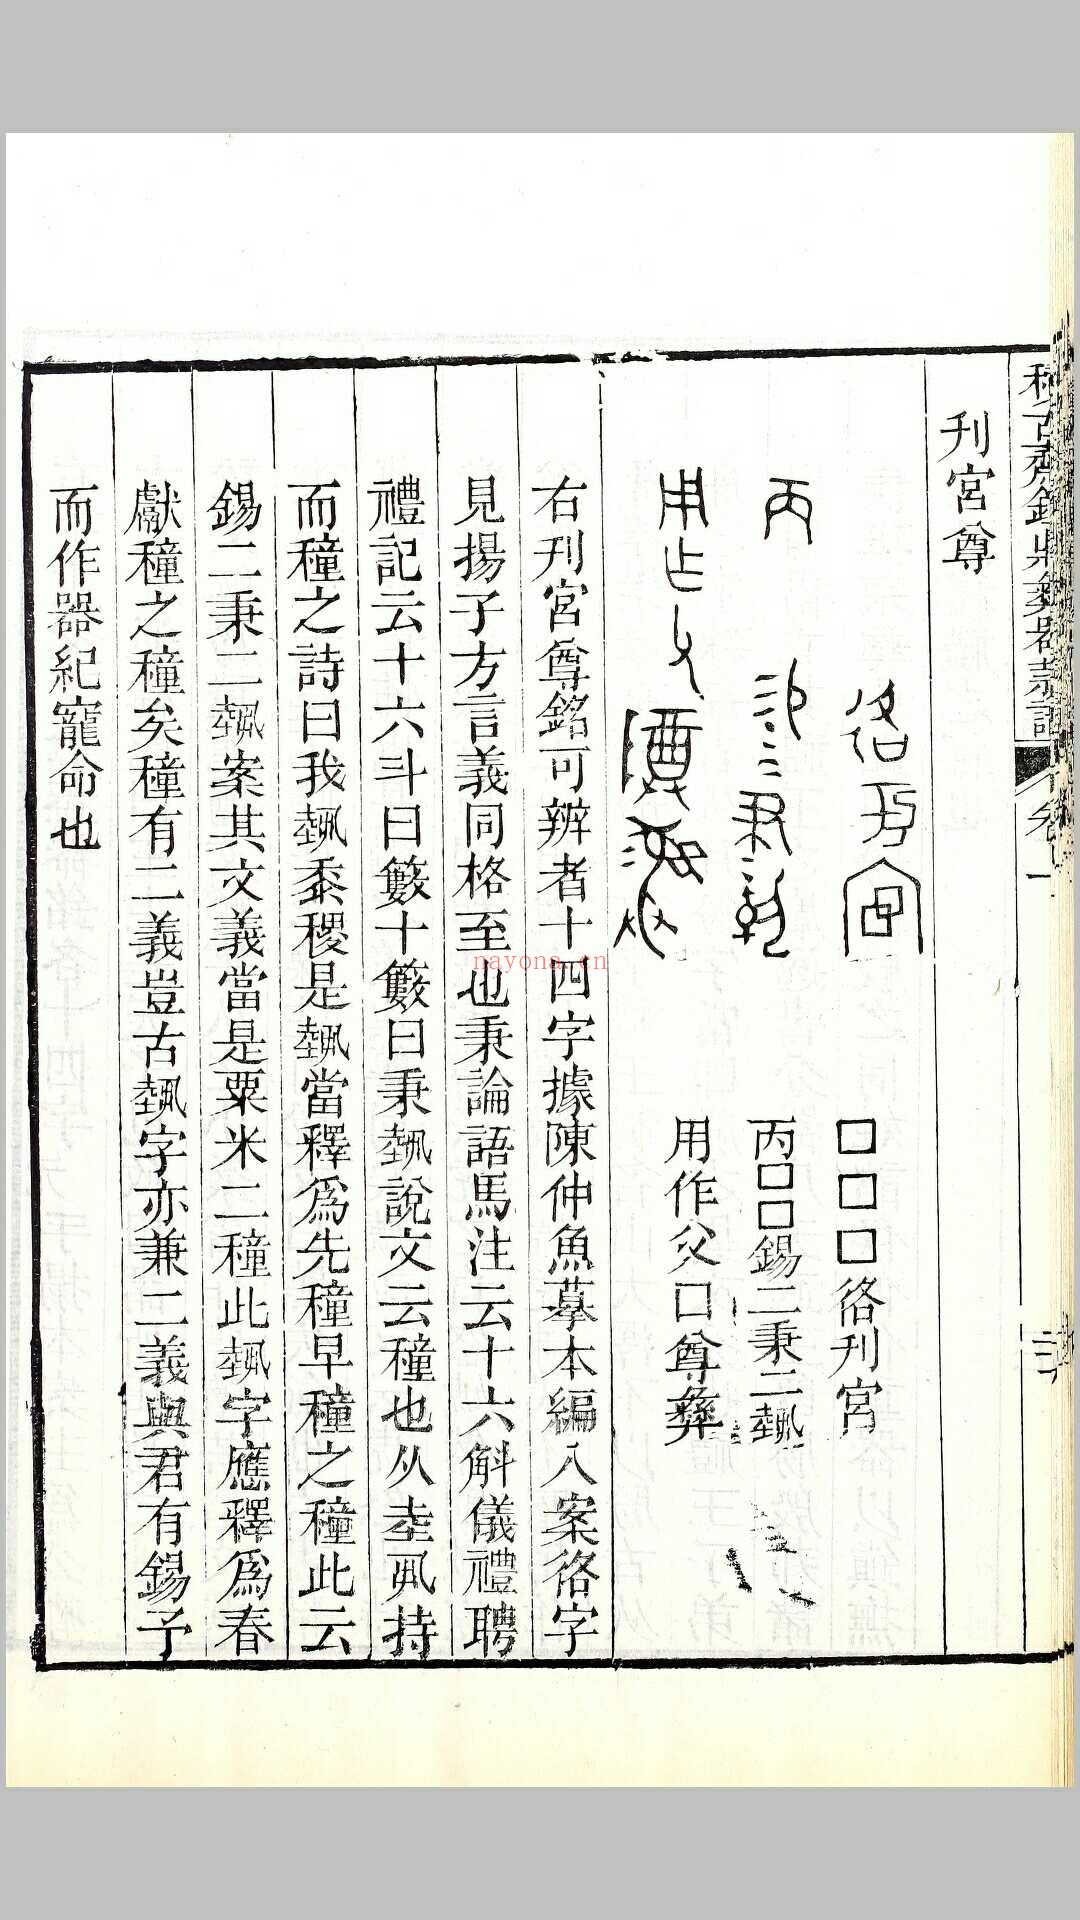 積古齋鐘鼎彝器款識 卷一
刋宮尊
□□□佫刋宮
丙□□錫二秉二𫇦
用作父口尊彝
右刋宮尊銘可辨者十四字據陳仲魚摹本編入案佫字
見揚子方言義同格至也秉論語馬注云十六斛儀禮聘
禮記云十六斗曰籔十籔曰秉𡎐說文云穜也从坴丮持
而穜之詩曰我𡎐黍稷是𡎐當釋爲先穜早穜之穜此云
錫二秉二𡎐案其文義當是粟米二穜此𡎐字應釋爲春
獻穜之穜矣穜有二義豈古𡎐字亦兼二義與君有錫予
而作器紀寵命也
nayona.cn